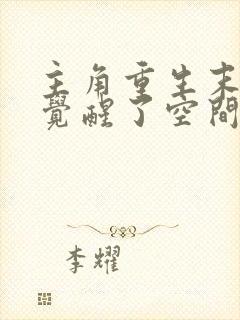 主角重生末
覺醒了空間
李耀